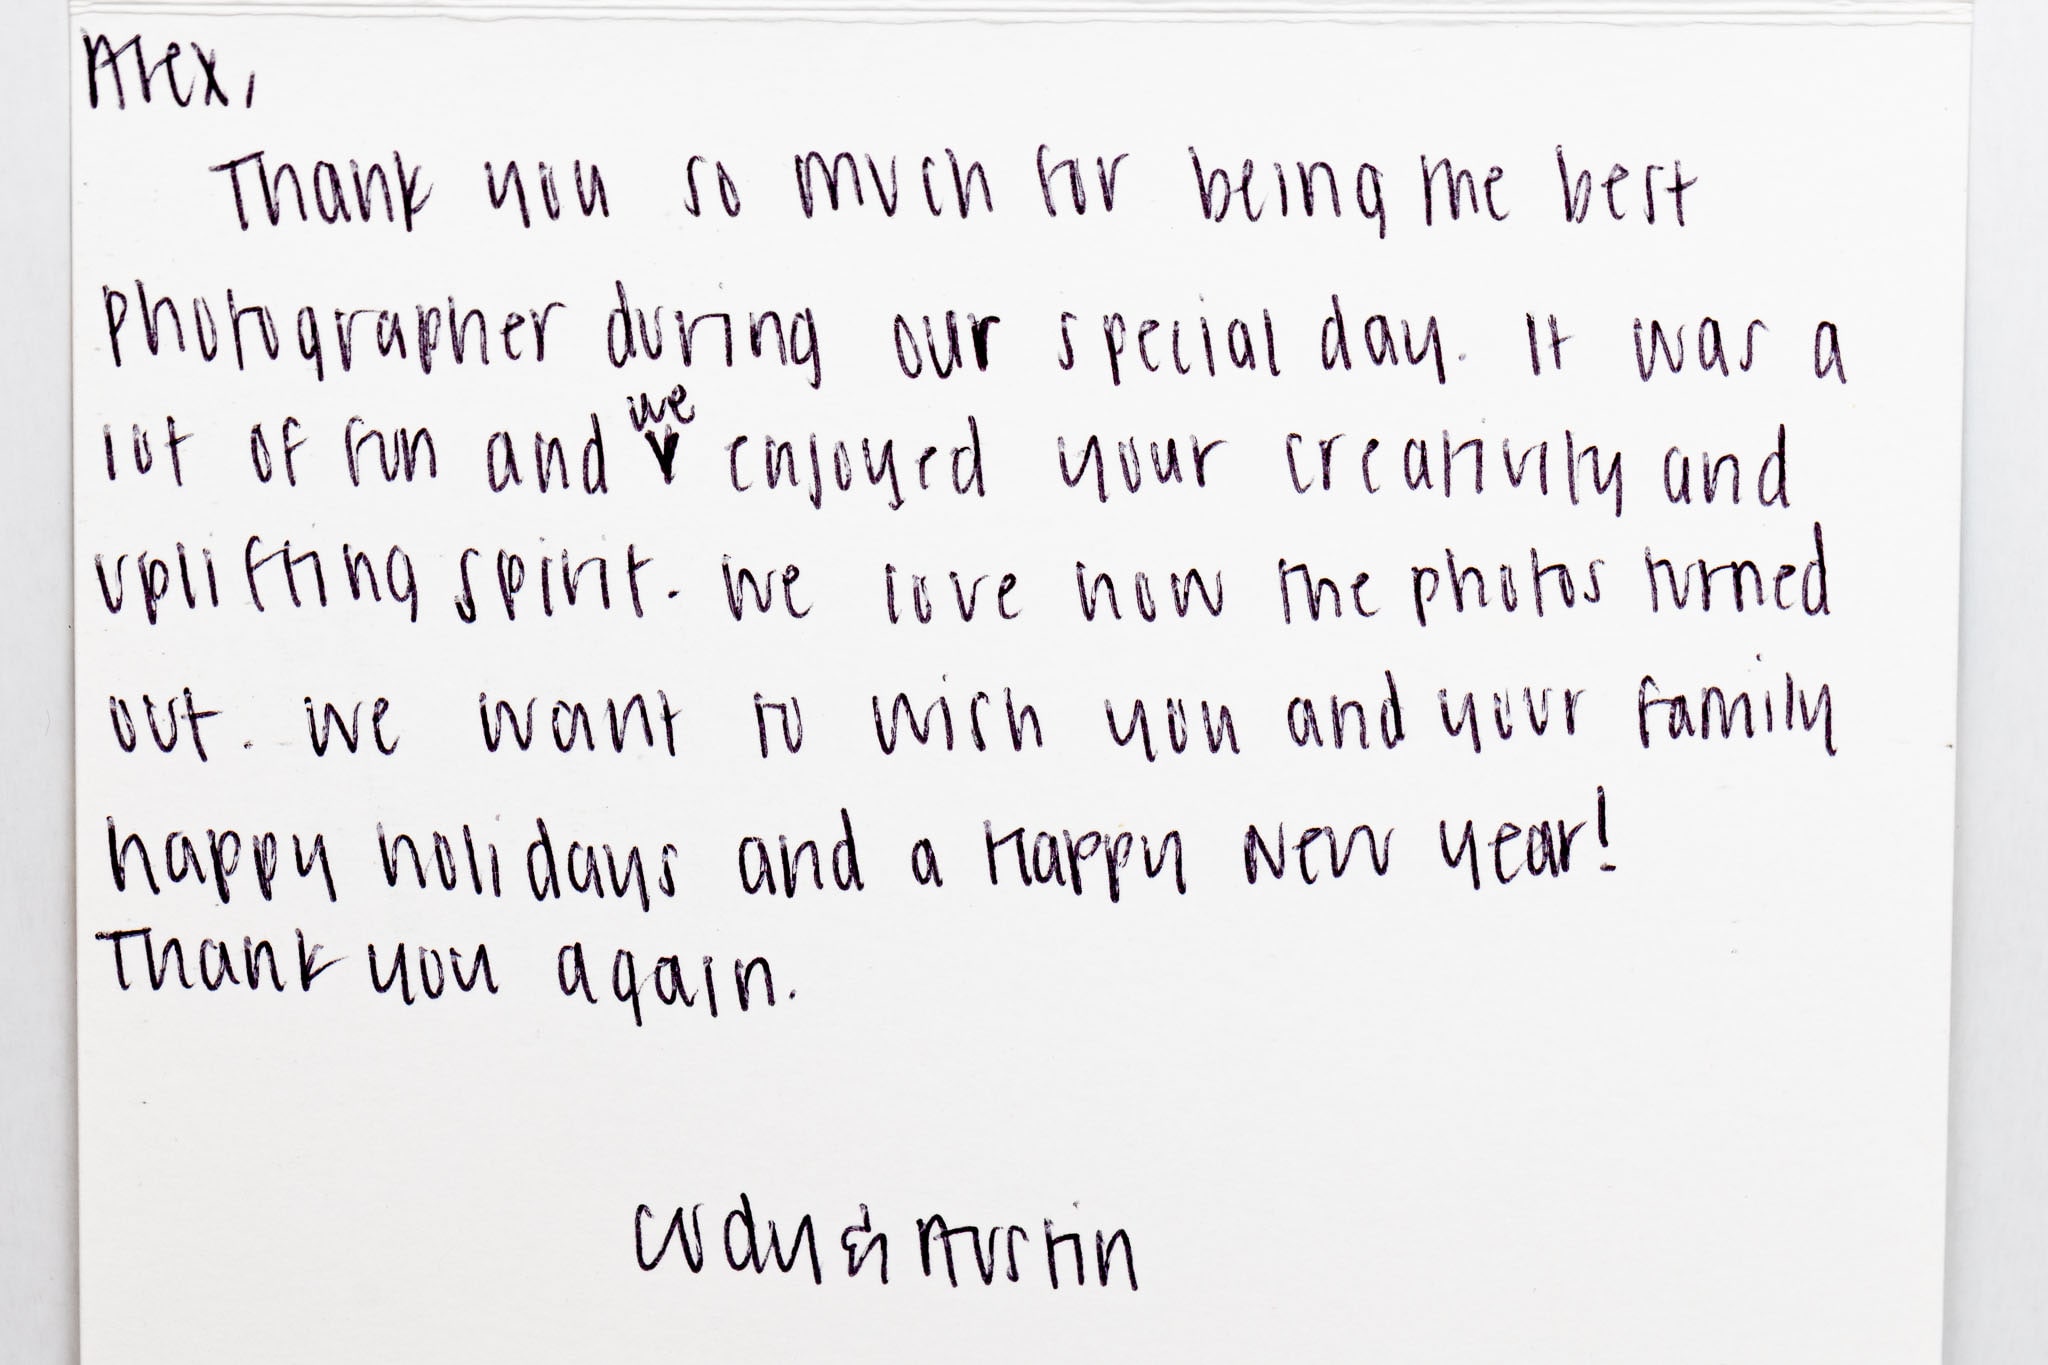 Alex,
Thank you so much for being the best
photographer during our special day. It was a
lot of fun and we enjoyed your creativity and
uplifting spirit. We love how the photos turned
out. We want to wish you and your family
happy holidays and a Happy New Year!
Thank you again.
Cody & Austin